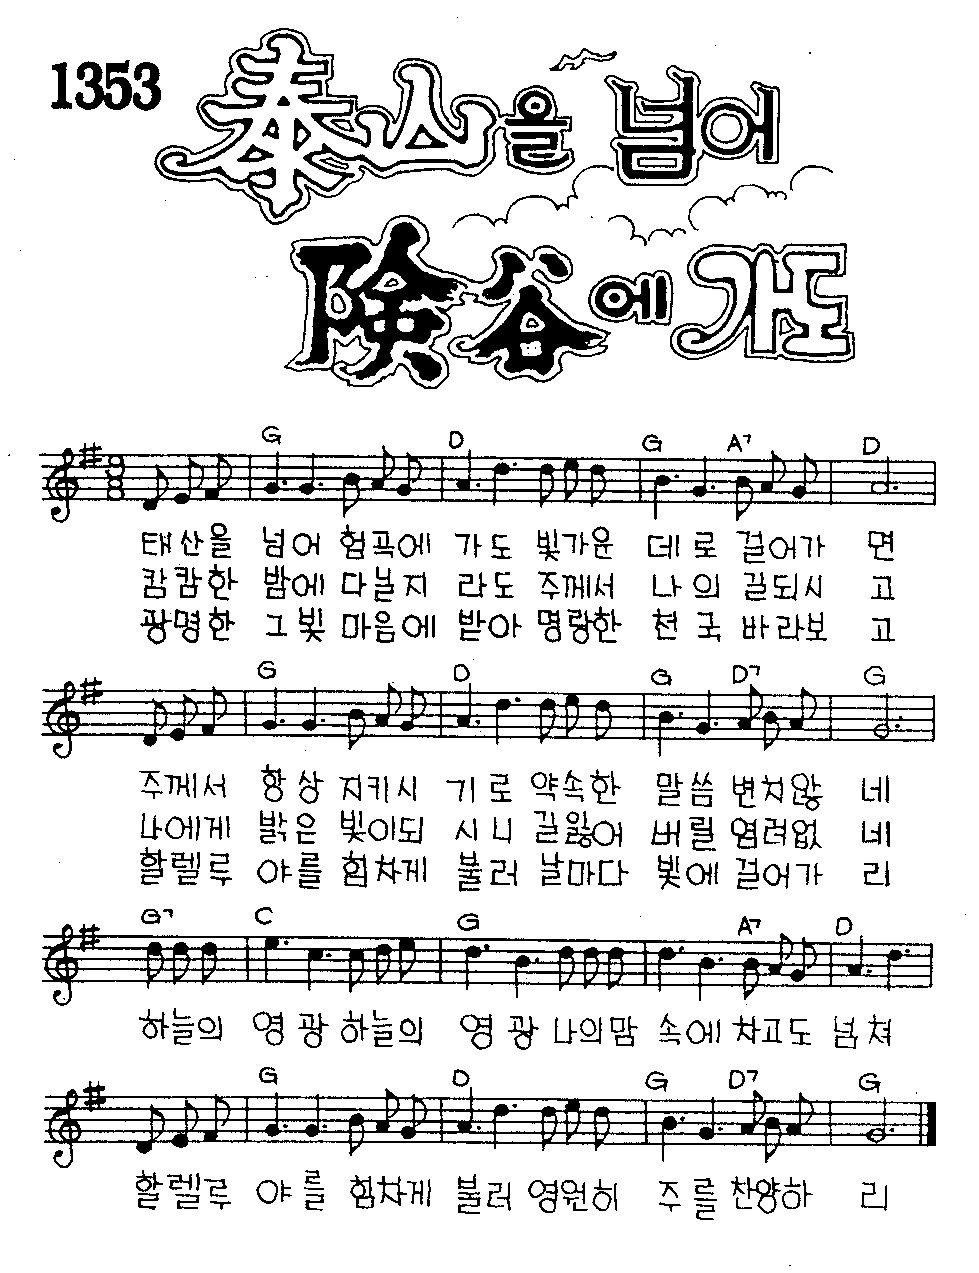 1353
泰山을 넘어
険谷에 가도
G D G A7 D
태산을 넘어 험곡에 가도 빛가운 데로 걸어가 면
캄캄한 밤에 다닐지 라도 주께서 나의 길되시 고
광명한 그빛 마음에 받아 명랑한 천국 바라보 고
G D G D7 G
주께서 항상 지키시 기로 약속한 말씀 변치않 네
나에게 밝은 빛이되 시니 길잃어 버릴 염려없 네
할렐루 야를 힘차게 불러 날마다 빛에 걸어가 리
G7 C G A7 D
하늘의 영광 하늘의 영광 나의맘 속에 차고도 넘쳐
G D G D7 G
할렐루 야를 힘차게 불러 영원히 주를 찬양하 리